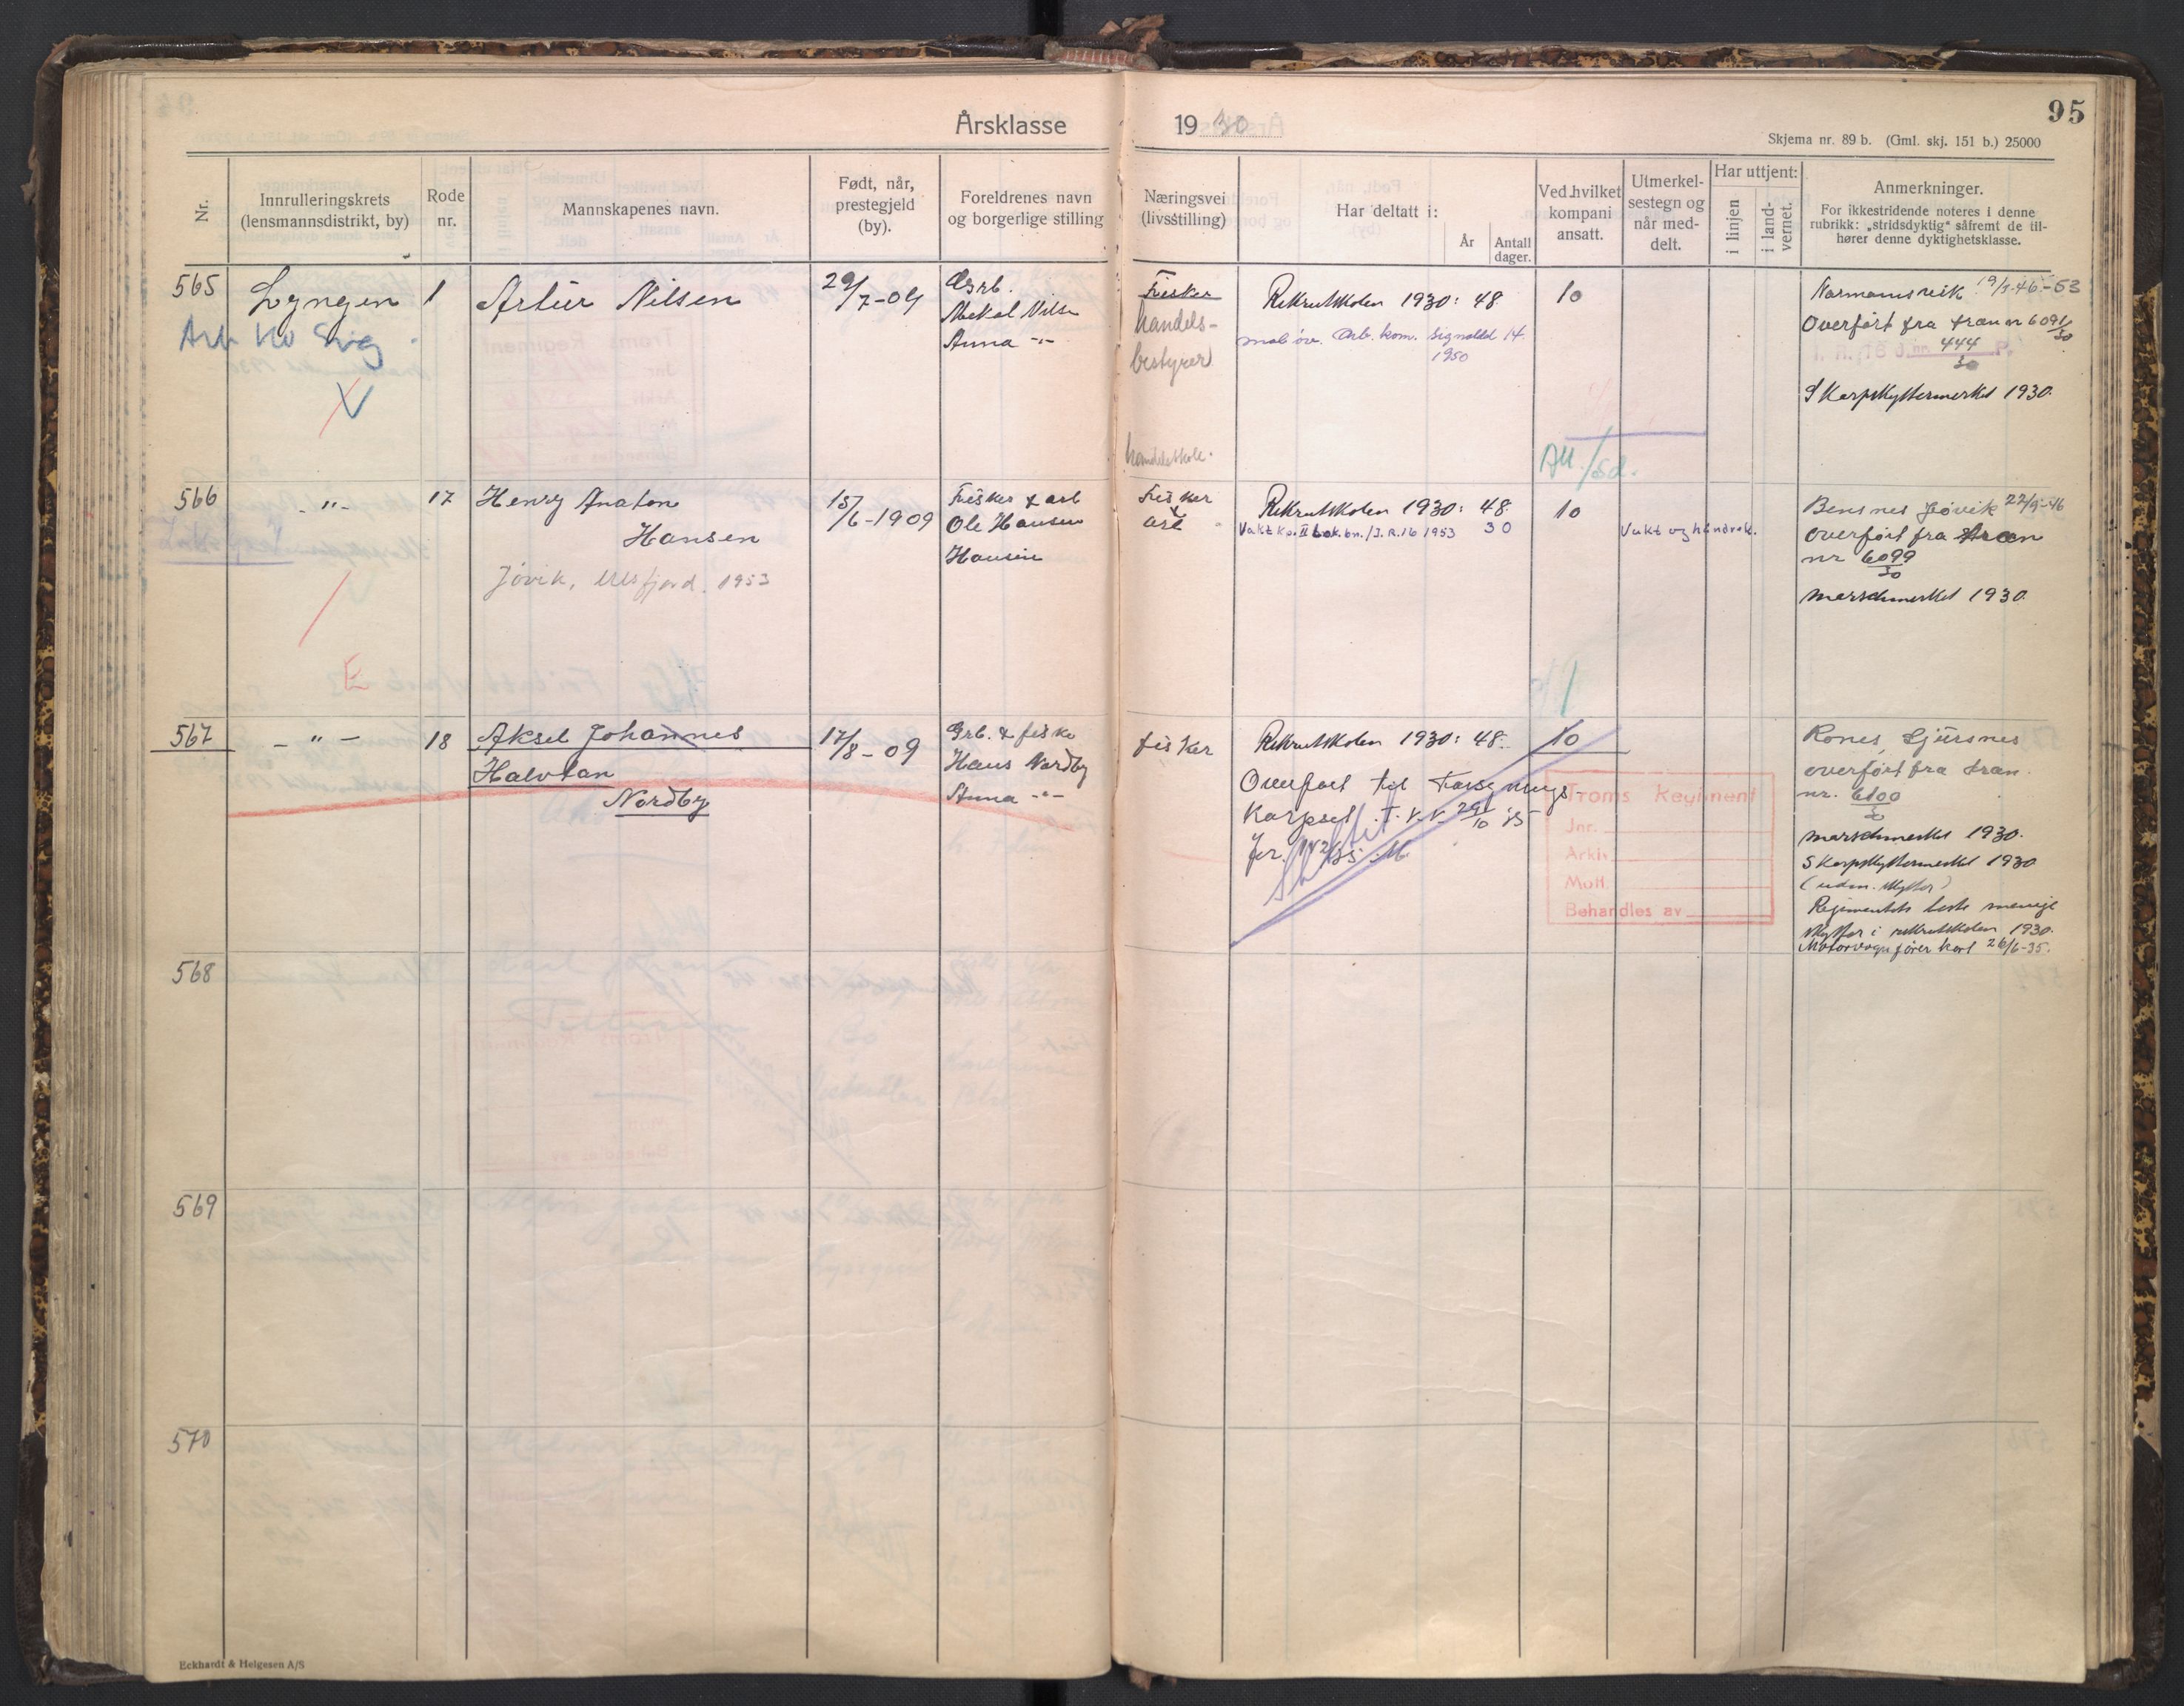 95
Årsklasse 1930
Skjema nr. 89 b. (Gml. skj. 151 b.) 25000
Nr.
Innrulleringskrets
(lensmannsdistrikt, by)
Rode
nr.
Mannskapenes navn.
Født, når,
prestegjeld
(by).
Foreldrenes navn
og borgerlige stilling
Næringsvei
(livsstilling)
Har deltatt i:
År
Antall
dager.
Ved hvilket
kompani
ansatt.
Utmerkel-
sestegn og
når med-
delt.
Har uttjent:
i linjen
i land-
vernet.
Anmerkninger.
For ikkestridende noteres i denne
rubrikk: „stridsdyktig“ såfremt de til-
hører denne dyktighetsklasse.
565
Lyngen
1
Artur Nilsen
29/7-09
Nilsen
Anna -"-
Fisker
handels-
bestyrer
handelsskole.
Rekrutskolen 1930: 48
mob öv. Arb. kom. Signaldd 14.
1950
10
Arb Ko Sig
V
19/3-46-53
Overført fra tran nr 6091/30
444
30
Skarpskyttermerket 1930.
566
-"-
17
Henry Anaton
Hansen
Jövik, Ulsfjord. 1953
15/6-1909
Fisker & arb
Ole Hansen
Hansine
Fisker
& arb
Rekrutskolen 1930: 48
Vakt ko. II Lok. bn./I.R.16 1953 30
10
Vakt og håndvåk.
Bensnes Jøvik 22/5-46
overført fra tran
nr 6099
30
marschmerket 1930.
E
567
-"-
18
Aksel Johannes
Halvtan
Nordby
17/8-09
Grb. & fisker
Hans Nordby
Anna -"-
fisker
Rekrutskolen 1930: 48.
10
Overført til Forsynings-
Korpset T.V.V. 29/10 35
Slettet
Troms Regiment
Jnr.
Arkiv
Mott.
Behandles av
Rones, Sjursnes
overført fra tran.
nr. 6100
30
marschmerket 1930.
Skarpskyttermerket 1930
(udm. skytter)
Regimentets beste menige
skytter i rekrutskolen 1930.
Motorvognførerkort 26/6-35.
568
569
570
Eckhardt & Helgesen A/S